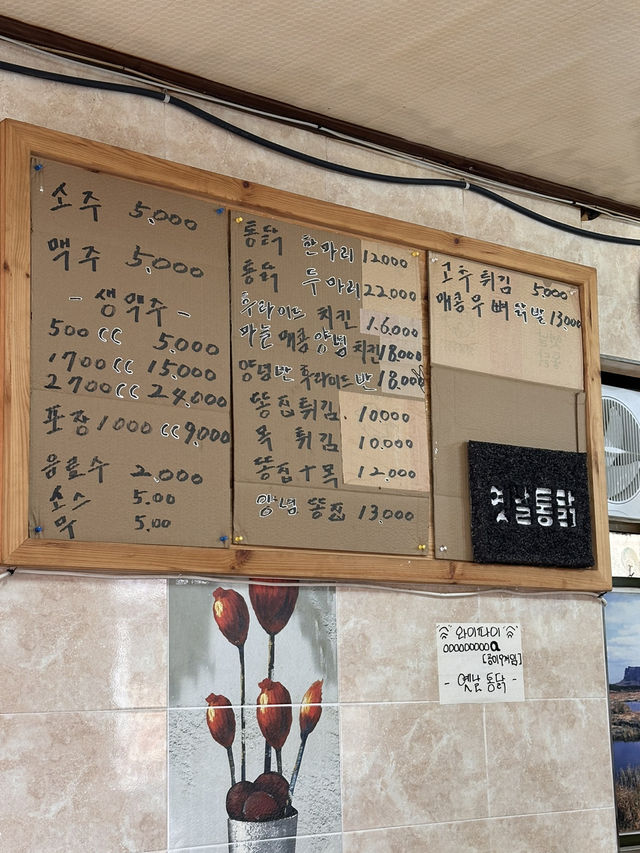 소주 5,000
맥주 5,000
- 생맥주 -
500 CC 5,000
1700 CC 15,000
2700 CC 24,000
포장 1000 CC 9,000
음료수 2,000
소스 5.00
무 5.00
통닭 한마리 12000
통닭 두마리 22,000
후라이드 치킨 16,000
마늘 매콤 양념 치킨 18000
양념반 후라이드반 18,000
똥집튀김. 10,000
목 튀김 10,000
똥집+목 12,000
양념 똥집 13,000
고추튀김 5,000
매콤무뼈닭발 13000
옛날통닭
와이파이
000000000a
[공이9개임]
- 옛날통닭 -